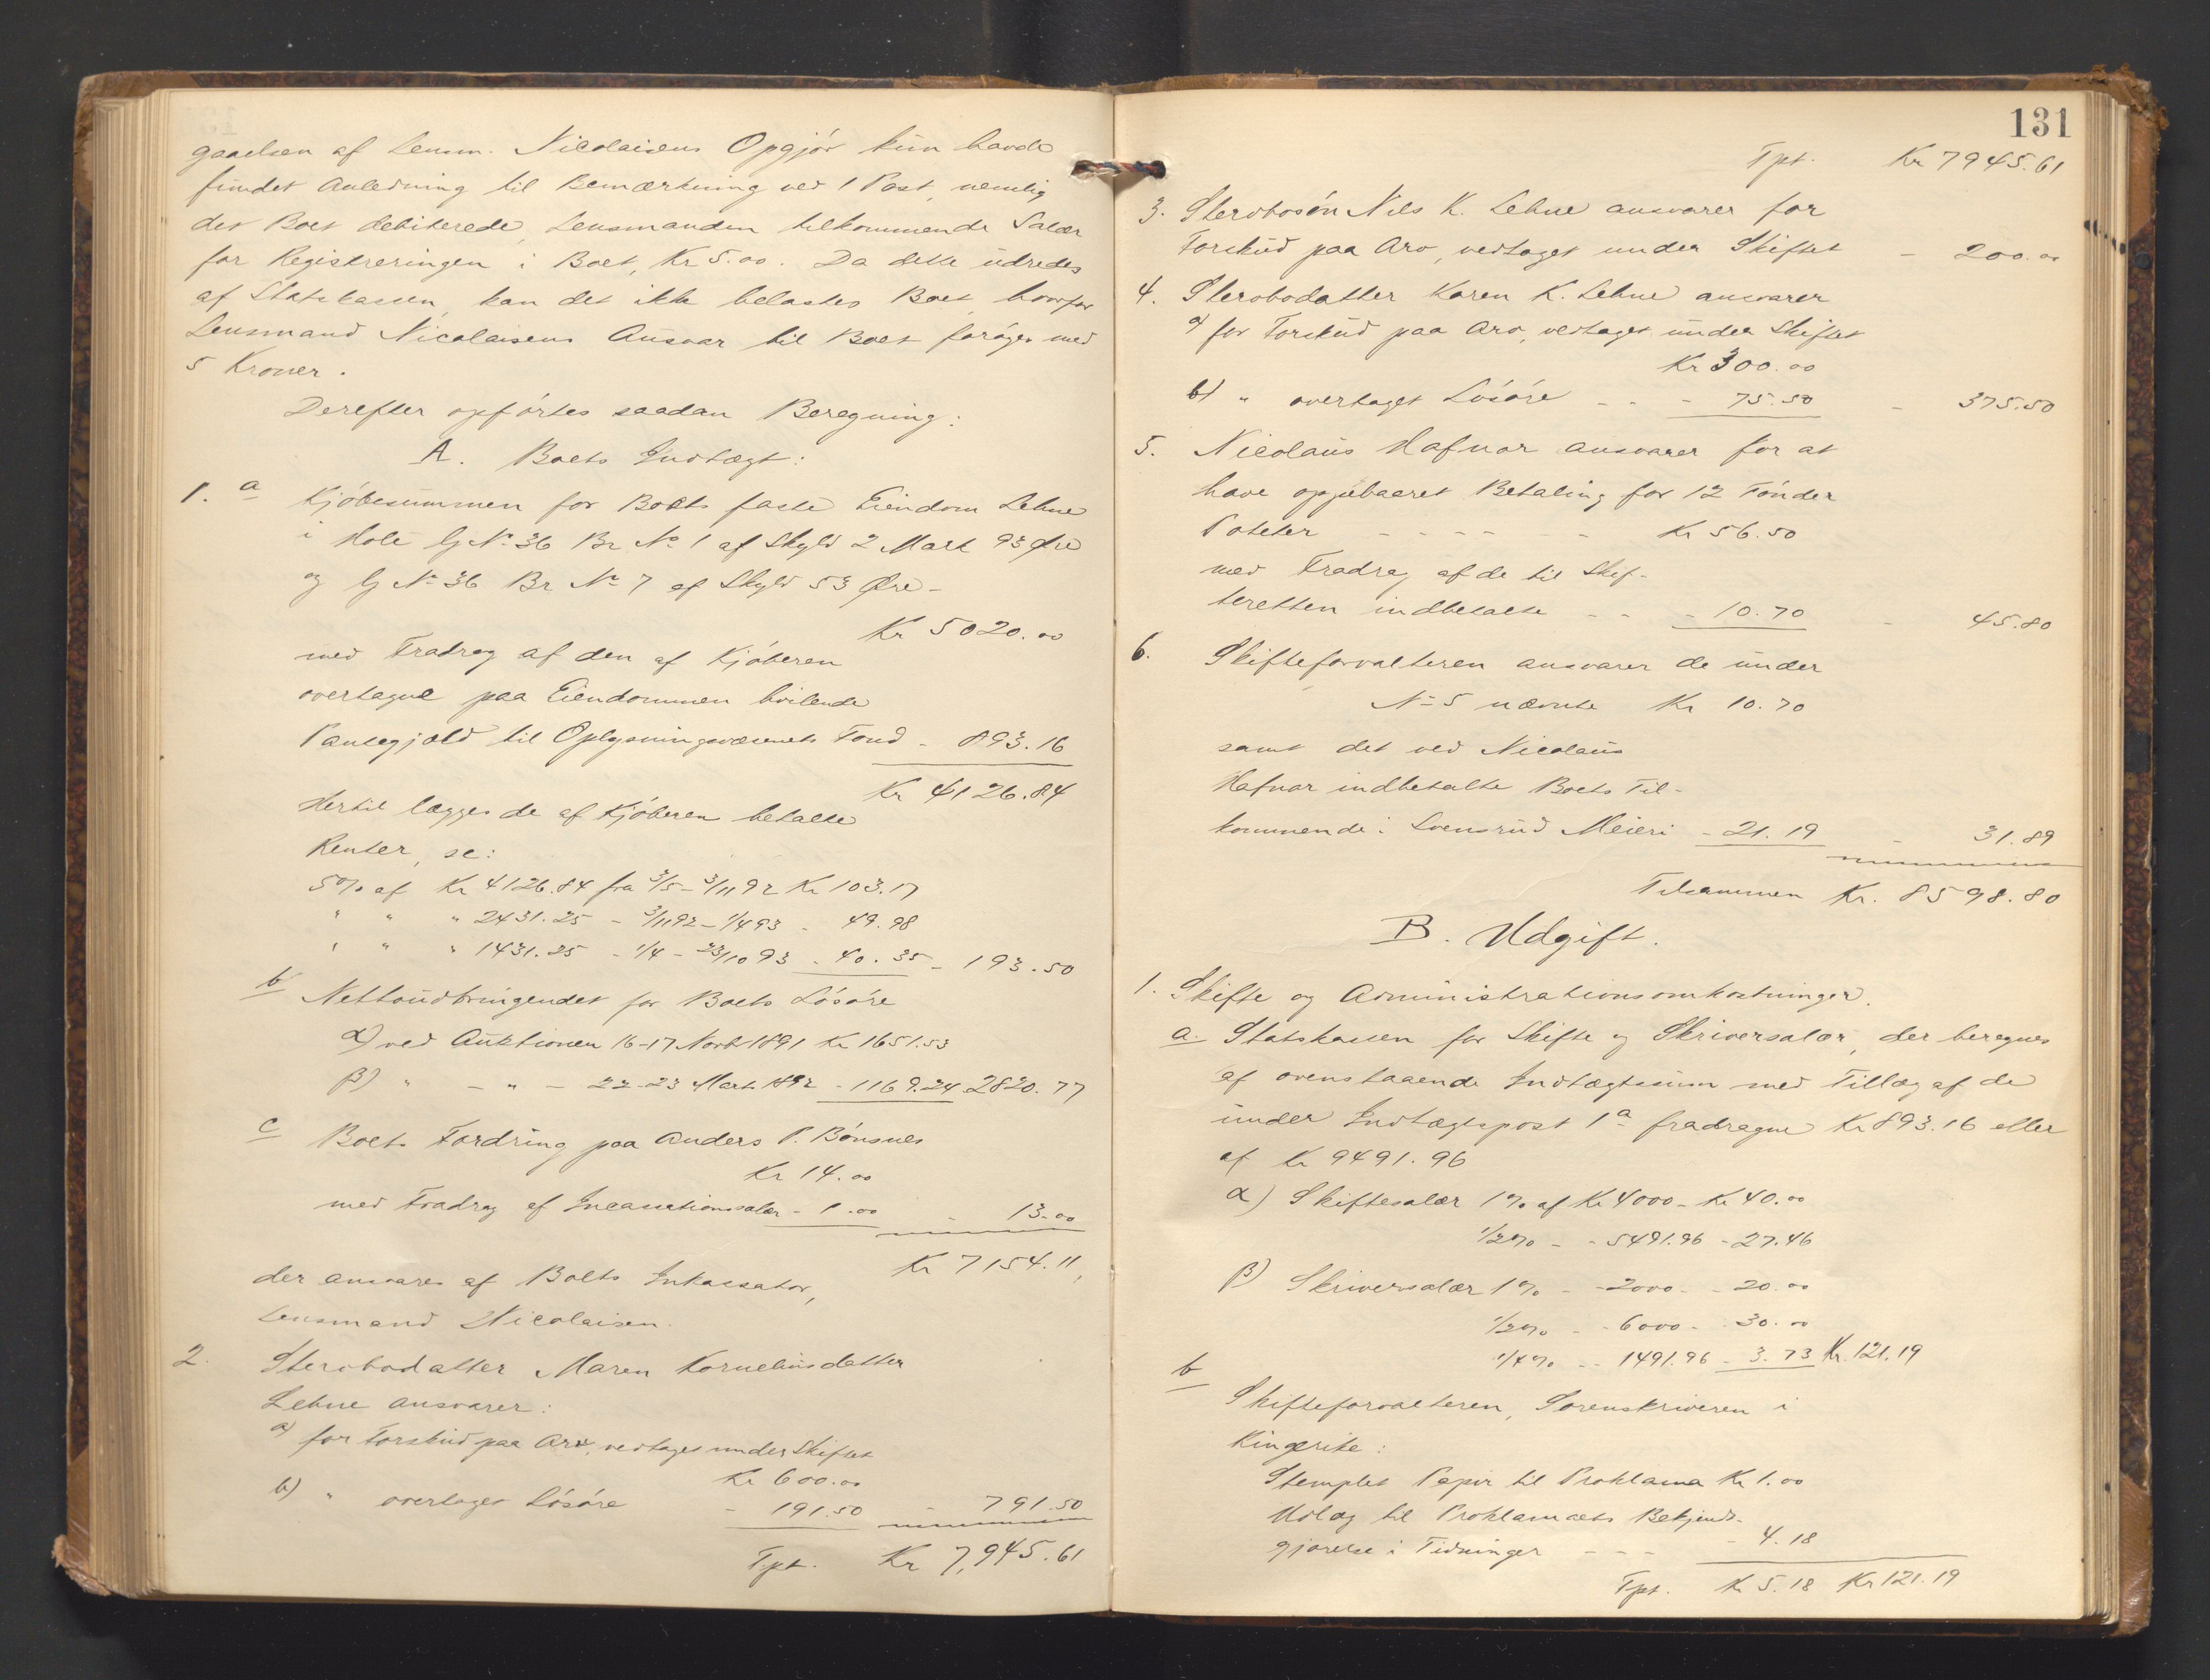 gaaelsen af Lensm. Nicolaisens Opgjör kun havde
fundet Anledning til Bemærkning ved 1 Post, nemlig
det Boet debiterede, Lensmanden tilkommende Salær
for Registreringen i Boet, Kr 5.00. Da dette udredes
af Statskassen, kan det ikke belastes Boet, hvorfor
Lensmand Nicolaisens Ansvar til Boet foröges med
5 Kroner.
Derefter opförtes saadan Beregning:
A. Boets Indtægt:
1. a Kjöbesummen for Boets faste Eiendom Lehne
i Hole G No 36 Br No 1 af Skyld 2 Mark 93 Øre
og G No 36 Br No 7 af Skyld 53 Øre -
Kr 5020.00
med Fradrag af den af Kjöberen
overtagne paa Eiendommen hvilende
Pantegjæld til Oplysningsvæsenets Fond - 893.16
Kr 4126.84
Hertil lægges de af Kjöberen betalte
Renter, se:
5 % af Kr 4126.84 fra 3/5 - 3/11 92 Kr 103.17
" " " 2431.25 - 3/11 92 - 1/4 93 - 49.98
" " " 1431.25 - 1/4 - 23/10 93 - 40.35 - 193.50
b Nettoudbringendet for Boets Lösöre
α) ved Auktionen 16-17 Novbr 1891 Kr 1651.53
β) " - " - 22-23 Marts 1892 - 1169.24 2820.77
c Boets Fordring paa Anders P. Bönsnes
Kr 14.00
med Fradrag af Incassationssalær - 1.00 - 13.00
Kr 7154.11,
der ansvares af Boets Inkassator,
Lensmand Nicolaisen.
2. Sterbodatter Maren Korneliusdatter
Lehne ansvarer:
a) for Forskud paa Arv, vedtaget under Skiftet
Kr 600.00
b) " overtaget Lösöre - 191.50 - 791.50
Tpt. Kr 7,945.61
131
Tpt. Kr 7945.61
3. Stervbosön Nils K. Lehne ansvarer for
Forskud paa Arv, vedtaget under Skiftet - 200.00
4. Stervbodatter Karen K. Lehne ansvarer
a) for Forskud paa Arv, vedtaget under Skiftet
Kr 300.00
b) " overtaget Lösöre - - - 75.50 - 375.50
5. Nicolaus Hafnor ansvarer for at
have oppebaaret Betaling for 12 Tönder
Poteter - - - - - Kr 56.50
med Fradrag af de til Skif-
teretten indbetalte - - - 10.70 - 45.80
6. Skifteforvalteren ansvarer de under
No 5 nævnte Kr 10.70
samt det ved Nicolaus
Hafnor indbetalte Boets Til-
kommende i Svensrud Meieri - 21.19 - 31.89
Tilsammen Kr. 8598.80
B. Udgift.
1. Skifte og Administrationsomkostninger.
a. Statskassen for Skifte og Skriversalær, der beregnes
af ovenstaaende Indtægtssum med Tillæg af de
under Indtægtspost 1a fradragne Kr 893.16 eller
af Kr 9491.96
α) Skiftesalær 1 % af Kr 4000 - Kr 40.00
1/2 % - - 5491.96 - 27.46
β) Skriversalær 1 % - - 2000 - - 20.00
1/2 % - - 6000 - - 30.00
1/4 % - - 1491.96 - 3.73 Kr. 121.19
b Skifteforvalteren, Sorenskriveren i
Ringerike:
Stemplet Papir til Proklama Kr 1.00
Udlæg til Proklamaets Bekjendt-
gjørelse i Tidninger - - - - 4.18
Tpt. Kr 5.18 Kr 121.19